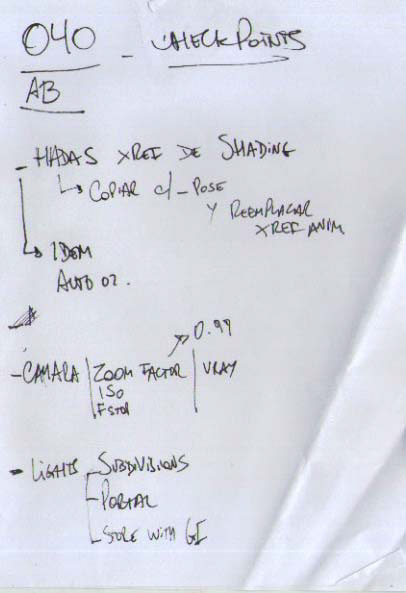 040 - CHECKPOINTS
AB
- HADAS XREF DE SHADING
COPIAR c/ POSE
Y REEMPLAZAR
XREF ANIM
IDEM
AUTO 02.
- CAMARA | ZOOM FACTOR → 0.99 | VRAY
ISO
FSTOP
- LIGHTS - SUBDIVISIONS
- PORTAL
- STORE WITH GI